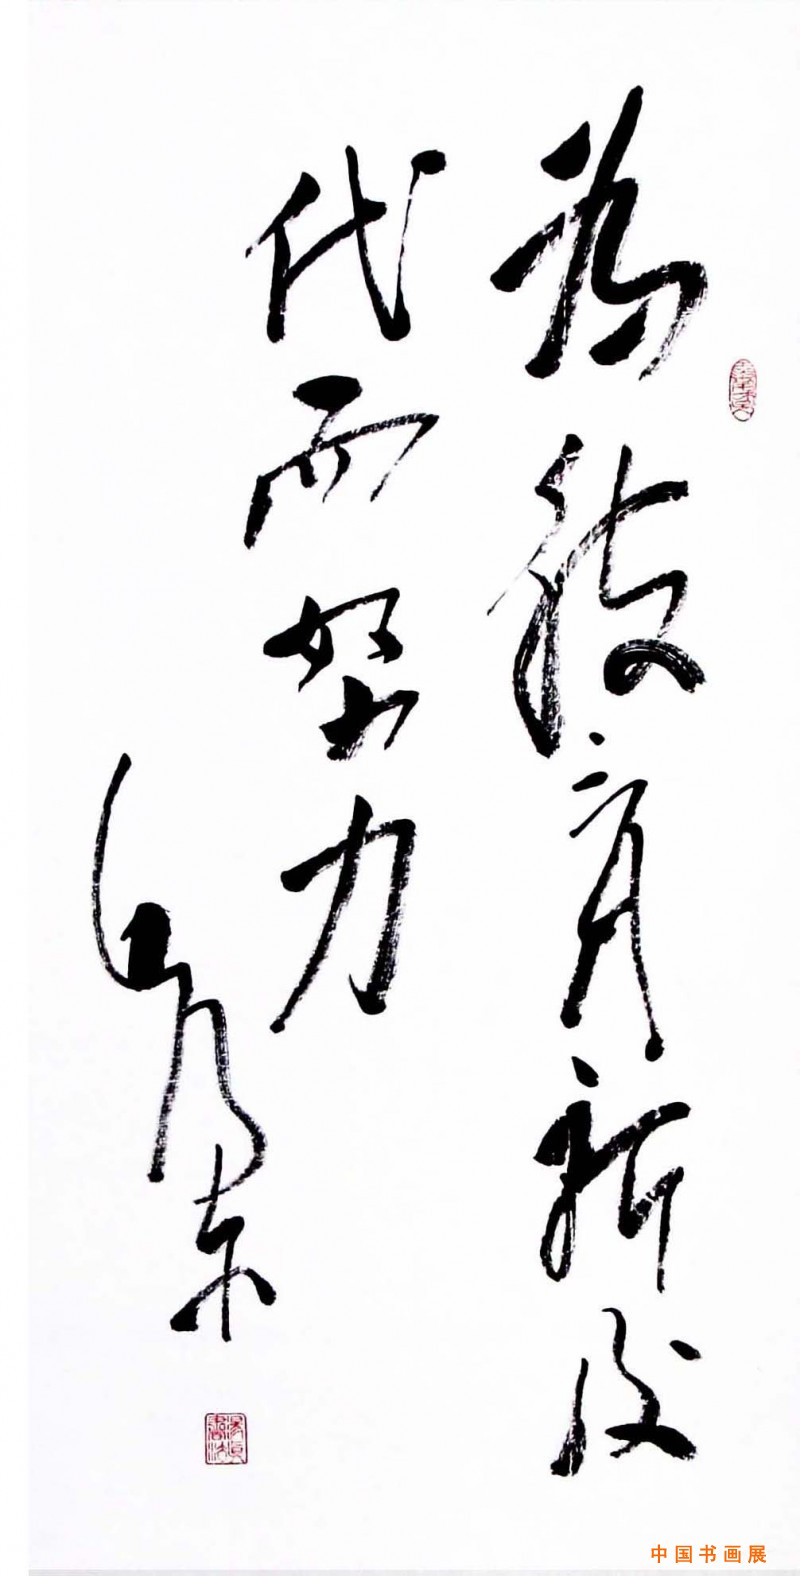 为教育新后
代而努力
毛泽东
中国书画展